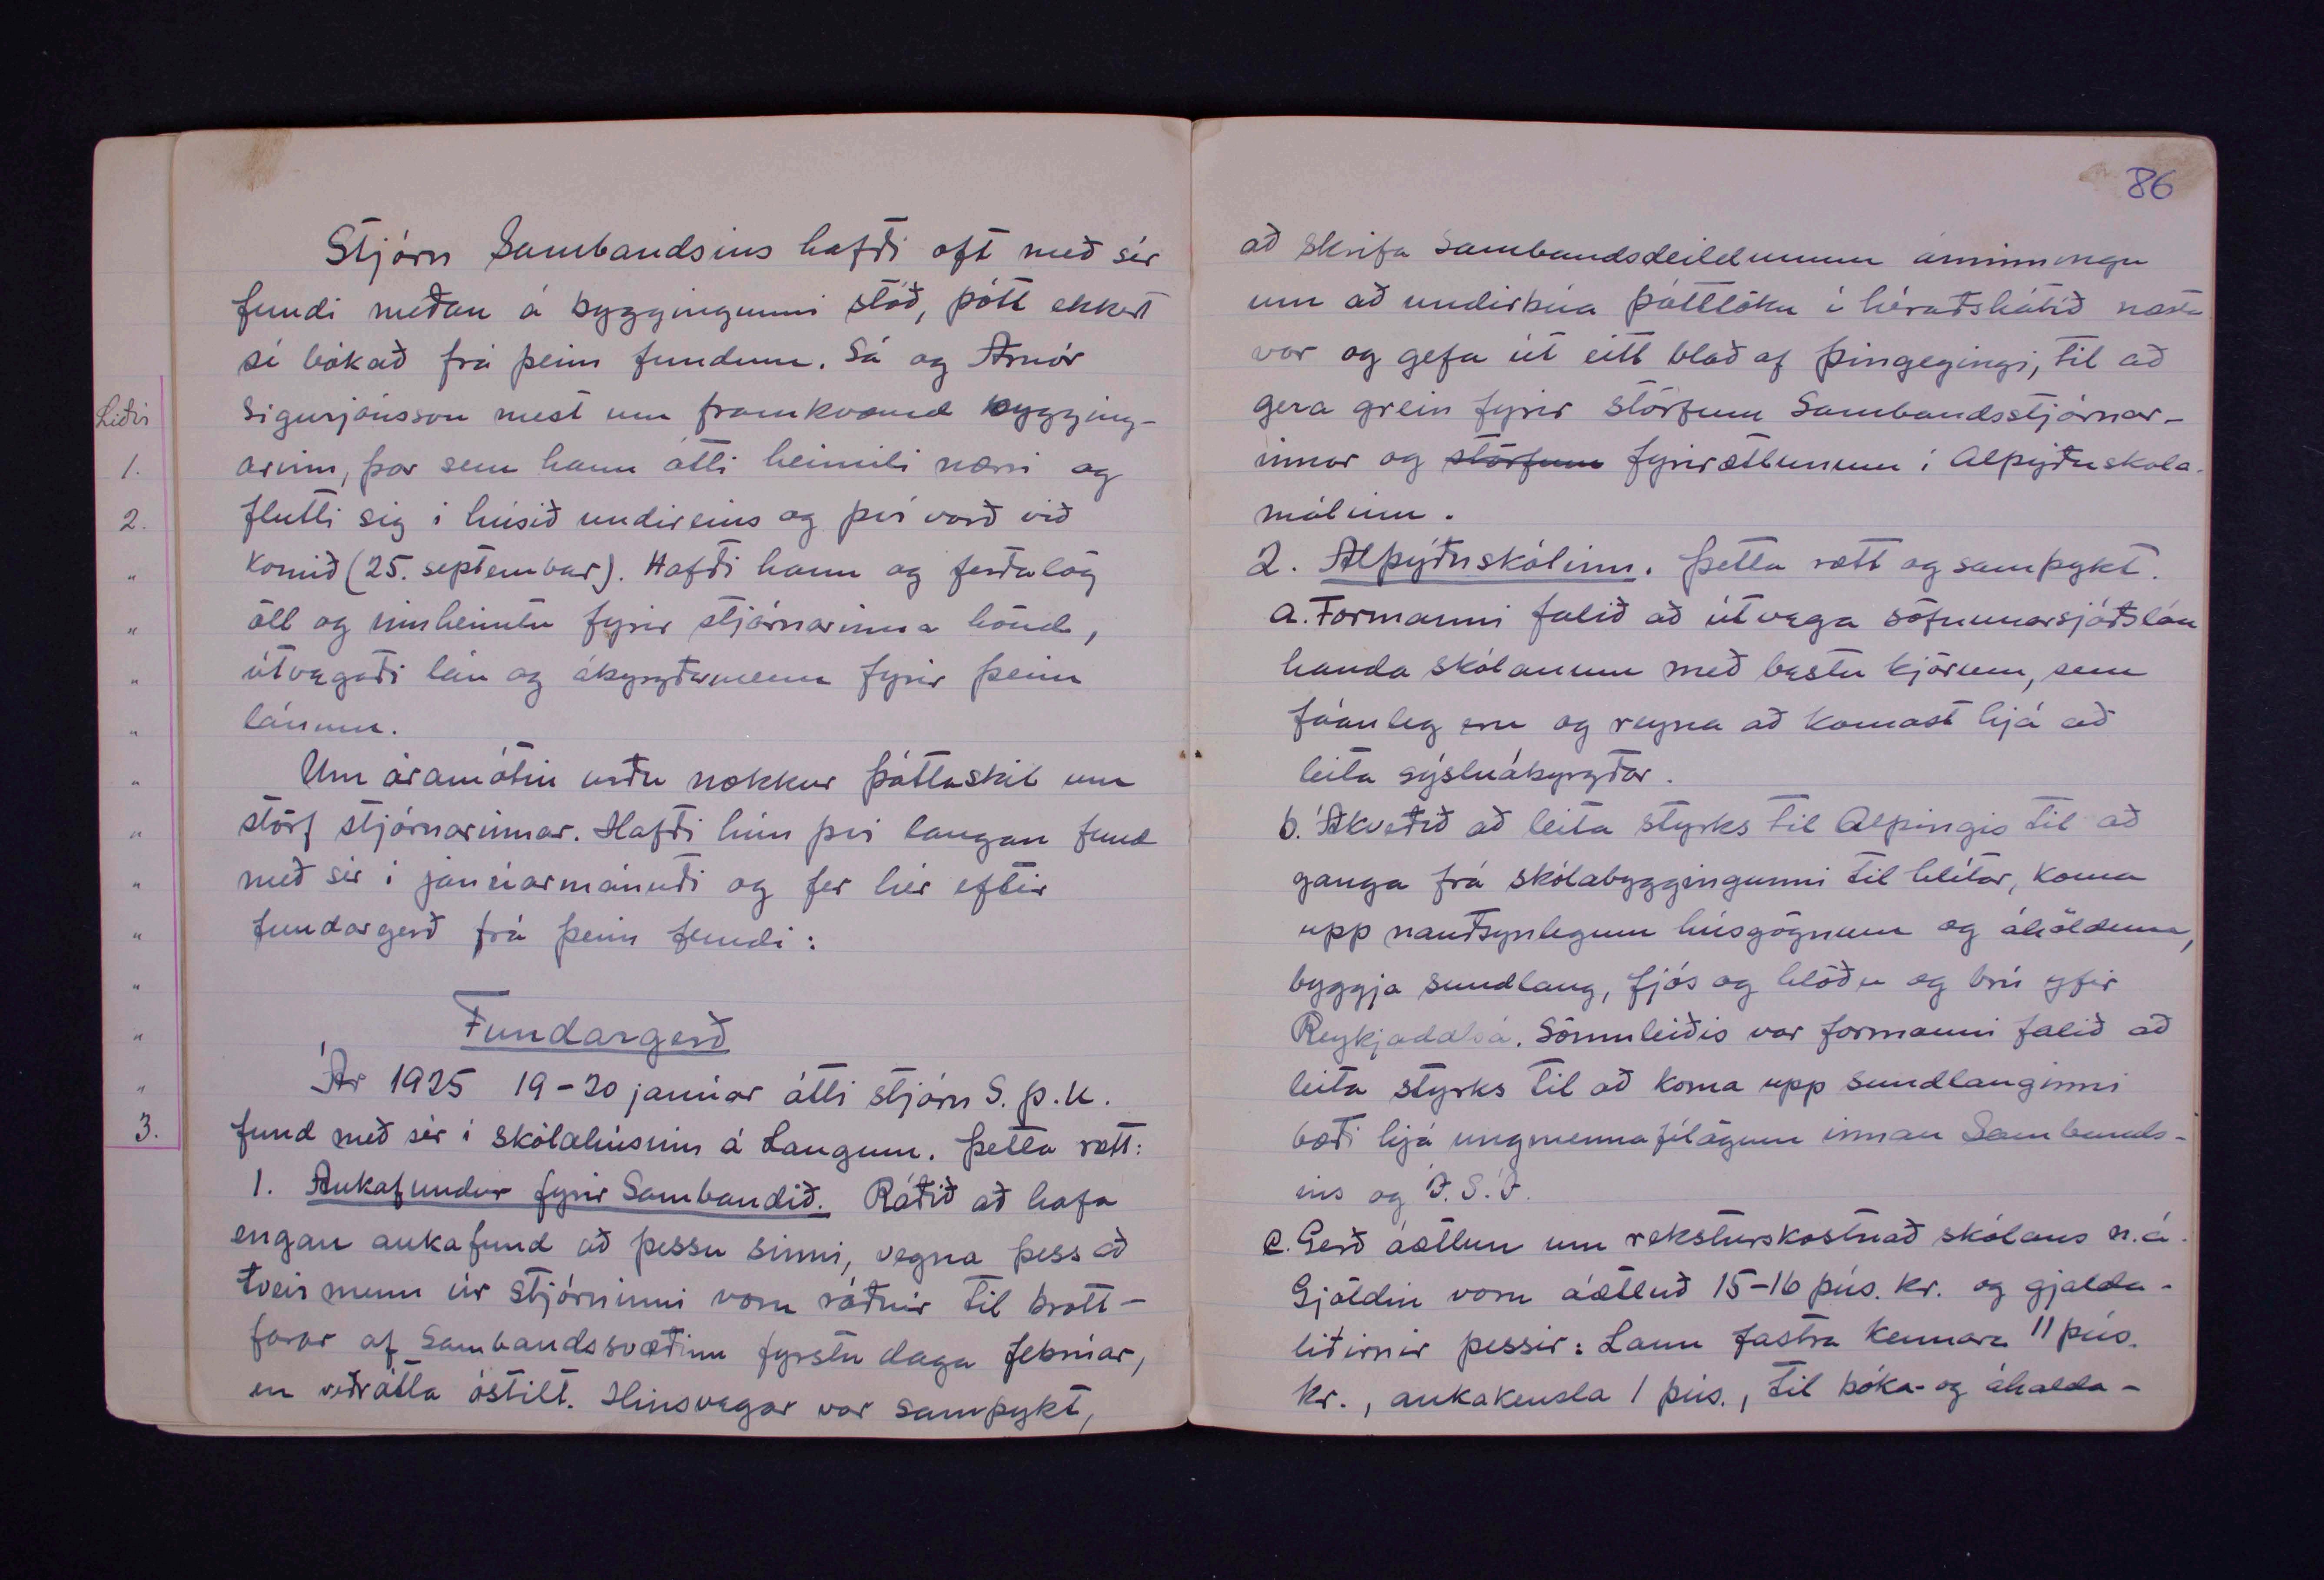 Stjórn Sambandsins hafði oft með sér
fundi meðan á byggingunni stóð, þótt ekkert
sé bókað frá þeim fundum. Sá og Arnór
Sigurjónsson mest um framkvæmd bygging-
arinn, þar sem hann átti heimili nærri og
flutti sig í húsið undireins og því varð við
komið (25. september). Hafði hann og ferðalög
öll og innheimtu fyrir stjórnarinnar hönd,
útvegaði lán og ábyrgðarmenn fyrir þeim
lánum.
Um áramótin urðu nokkur þáttaskil um
störf stjórnarinnar. Hafði hún því langan fund
með sér í janúarmánuði og fer hér eftir
fundargerð frá þeim fundi:
Fundargerð
Ár 1925 19-20 janúar átti stjórn S.þ.u.
fund með sér í skólahúsinu á Laugum. Þetta rætt:
1. Aukafundur fyrir Sambandið. Ráðið að hafa
engan aukafund að þessu sinni, vegna þess að
tveir menn úr stjórninni voru ráðnir til brott-
farar af Sambandssvæðinu fyrstu daga febrúar,
en veðrátta óstilt. Hinsvegar var samþykt,
Liðir
1.
2.
"
"
"
"
"
"
"
"
"
"
"
3.
86
að skrifa Sambandsdeildunum áminningu
um að undirbúa þátttöku í héraðshátíð næsta
vor og gefa út eitt blað af Þingegingi, til að
gera grein fyrir störfum Sambandsstjórnar-
innar og störfum fyrirætlunum í Alþýðuskóla-
málinu.
2. Alþýðuskólinn. Þetta rætt og samþykt.
a. Formanni falið að útvega söfnunarsjóðslán
handa skólanum með bestu kjörum, sem
fáanleg eru og reyna að komast hjá að
leita sýsluábyrgðar.
b. Ákveðið að leita styrks til Alþingis til að
ganga frá skólabyggingunni til hlítar, koma
upp nauðsynlegum húsgögnum og áhöldum,
byggja sundlaug, fjós og hlöðu og brú yfir
Reykjadalsá. Sömuleiðis var formanni falið að
leita styrks til að koma upp sundlauginni
bæði hjá ungmennafélögum innan Sambands-
ins og Í.S.Í.
c. Gerð áætlun um reksturskostnað skólans n.á.
Gjöldin voru áætluð 15-16 þús. kr. og gjalda-
liðirnir þessir: Laun fastra kennara 11 þús.
kr., aukakensla 1 þús., til bóka- og áhalda-